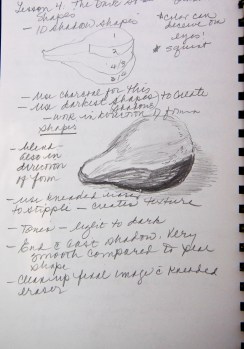 Lesson 4: The Dark
Shapes
- ID shadow shapes
* color can
deceive our
eyes!
* squint
1
2
3
4/5
- Use charcoal for this
- Use darkest shapes to create
(shadows)
- work in direction of form
Shapes
- blend
also in
direction
of form
- use kneaded eraser
to stipple - creates texture
- Tones - light to dark
- End c cast shadow. Very
smooth compared to pear
shape
- Clean up final image c kneaded
eraser